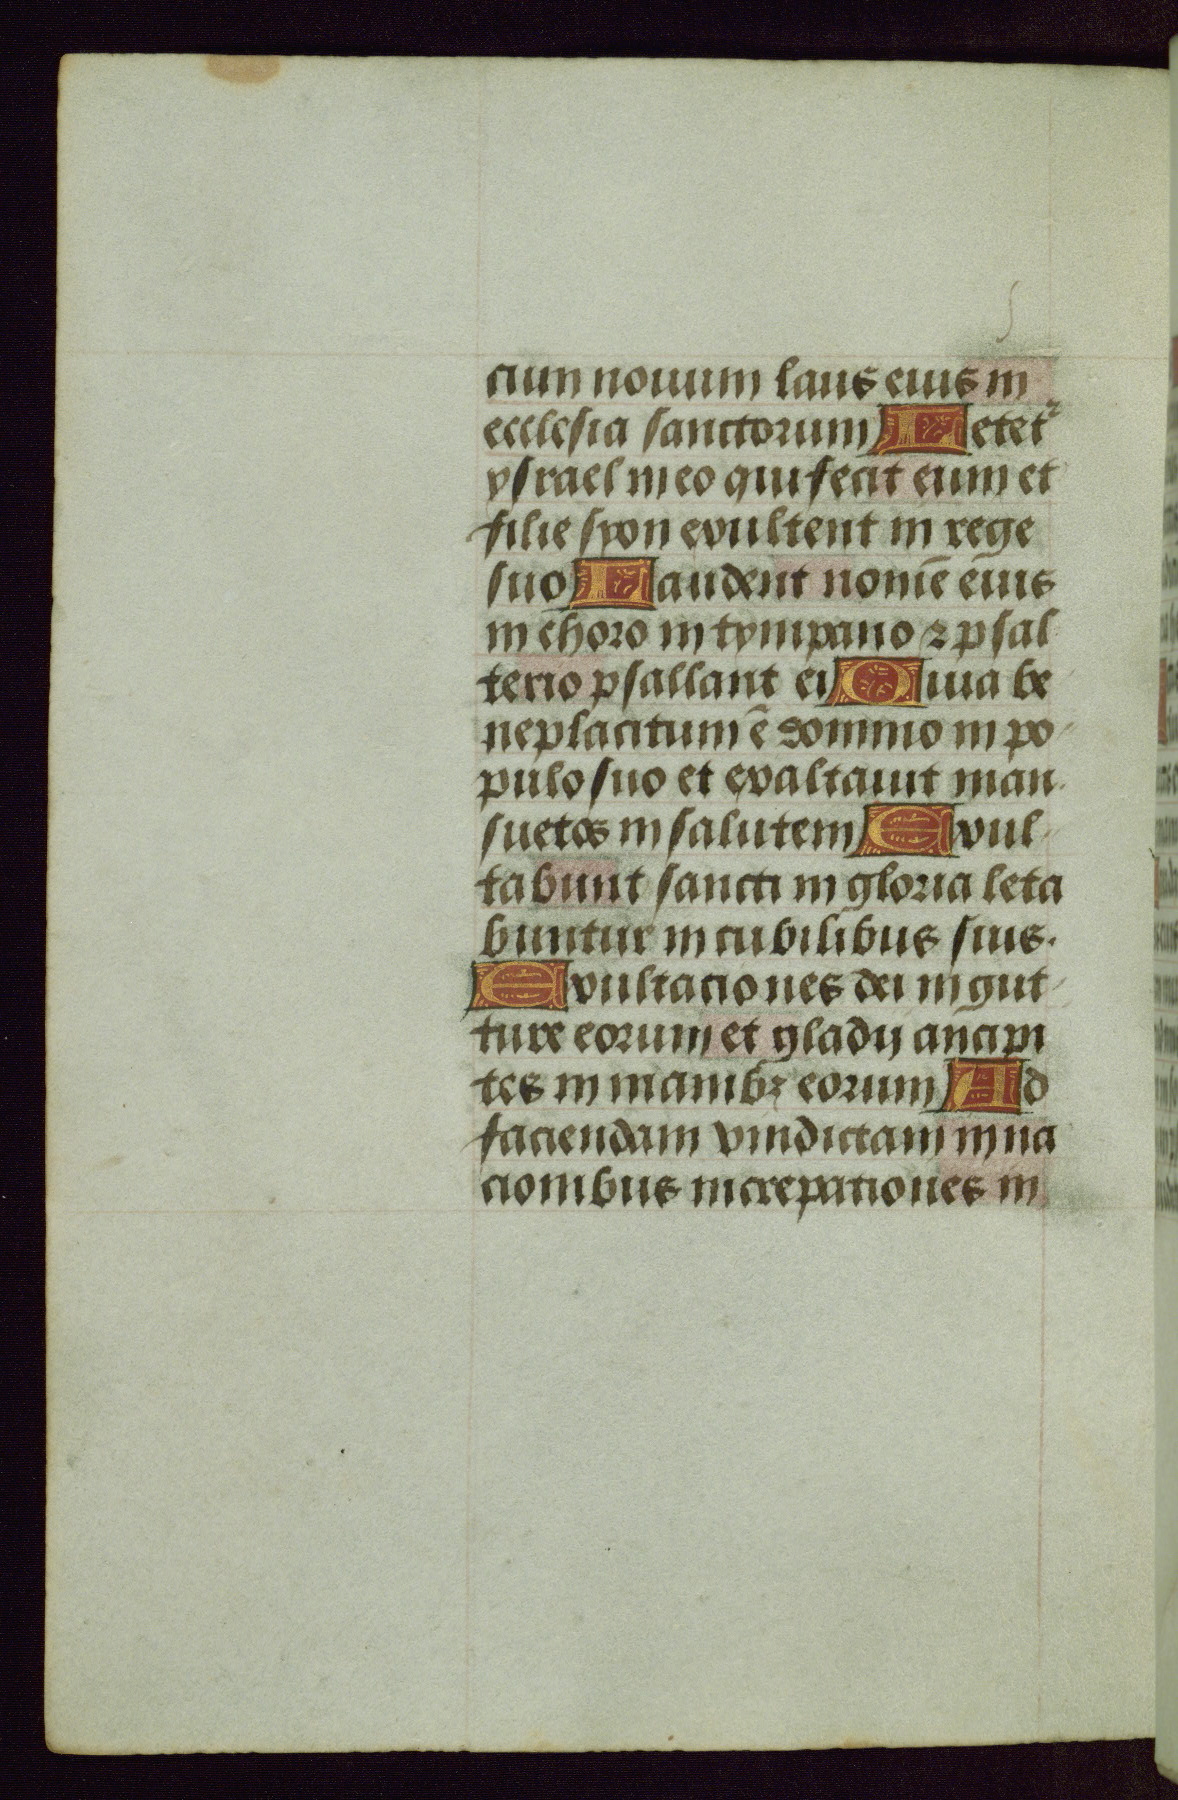 cum nouum laus eius in
ecclesia sanctorum Letet᷑
ysrael in eo qui fecit eum et
filie syon exultent in rege
suo Laudent nomē eius
in choro in tympano ⁊ psal
terio psallant ei Quia be
neplacitum ē domino in po
pulo suo et exaltauit man
suetos in salutem Exul
tabunt sancti in gloria leta
buntur in cubilibus suis.
Exultaciones dei in gut
ture eorum et gladij ancipi
tes in manibꝫ eorum Ad
faciendam vindictam in na
cionibus increpationes in